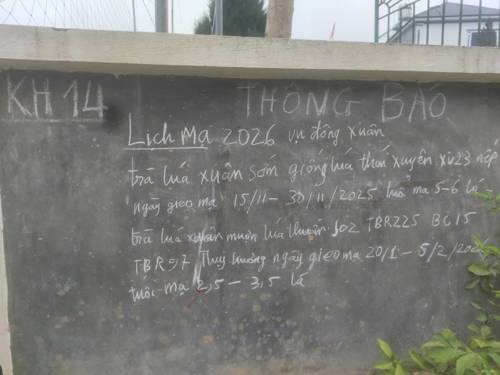 KH 14
THÔNG BÁO
Lịch Mạ 2026 vụ đông xuân
trà lúa xuân sớm giống lúa thái xuyên xi23 nếp
ngày gieo mạ 15/11 - 30/11/2025 tuổi mạ 5-6 lá
trà lúa xuân muộn lúa thuần J02 TBR225 BC15
TBR97 Thụy hương ngày gieo mạ 20/1 - 5/2/202
tuổi mạ 2,5 - 3,5 lá